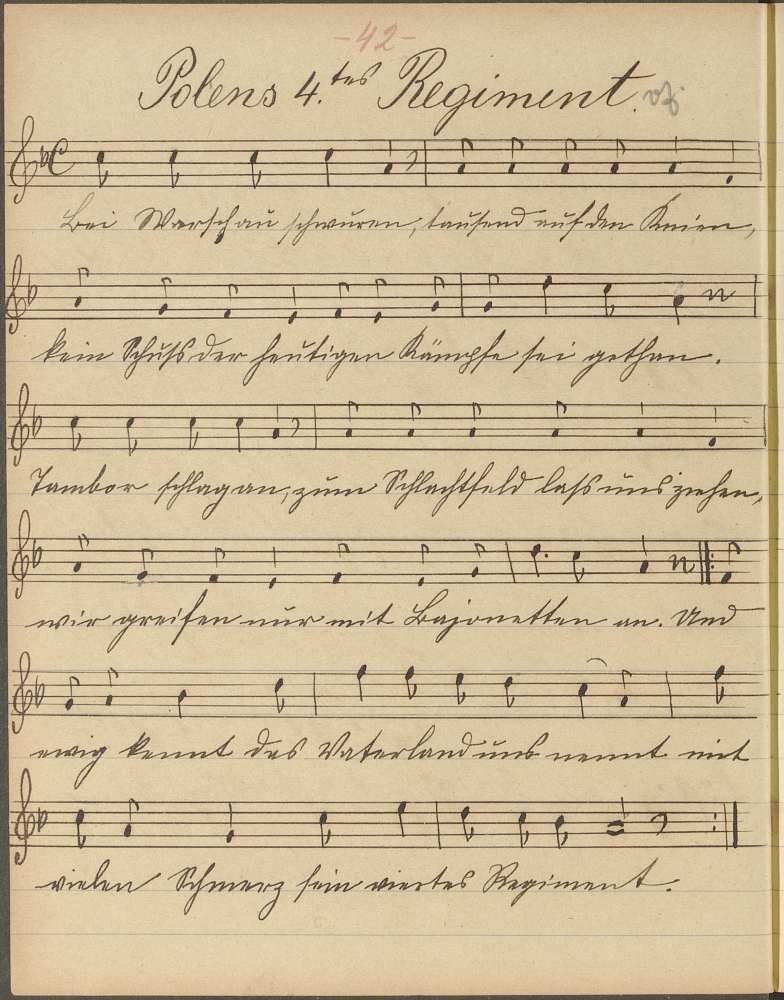 -42-
Polens 4.tes Regiment.
Bei Warschau schwuren, tausend auf den Knien,
kein Schuss der heutigen Kämpfe sei gethan.
Tambor schlag an, zum Schlachtfeld lass uns ziehen,
wir greifen nur mit Bajonetten an. Und
ewig kennt das Vaterland uns nennt mit
vielen Schmerz sein viertes Regiment.